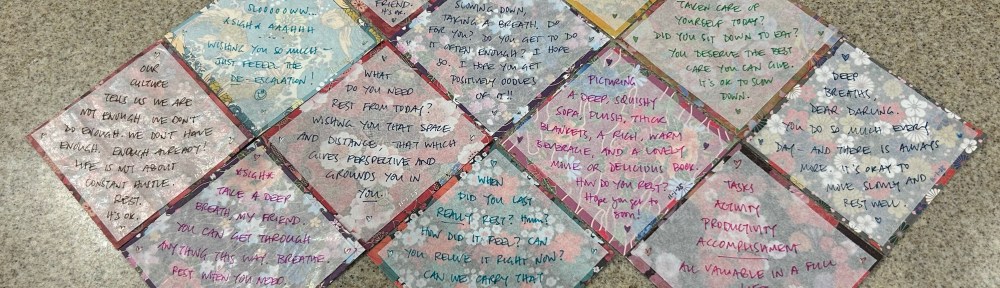 SLOOOOOWW..
*SIGH* AAAHHH
WISHING YOU SO MUCH -
JUST FEEEEL THE
DE-ESCALATION!
FRIEND.
IT'S OK.
SLOWING DOWN,
TAKING A BREATH. DO
FOR YOU? DO YOU GET TO DO
IT OFTEN ENOUGH? I HOPE
SO. I HOPE YOU GET
POSITIVELY OODLES
OF IT!!
TAKEN CARE OF
YOURSELF TODAY?
DID YOU SIT DOWN TO EAT?
YOU DESERVE THE BEST
CARE YOU CAN GIVE.
IT'S OK TO SLOW
DOWN.
OUR
CULTURE
TELLS US WE ARE
NOT ENOUGH. WE DON'T
DO ENOUGH. WE DON'T HAVE
ENOUGH. ENOUGH ALREADY!
LIFE IS NOT ABOUT
CONSTANT HUSTLE.
REST.
IT'S OK.
WHAT
DO YOU NEED
REST FROM TODAY?
WISHING YOU THAT SPACE
AND DISTANCE - THAT WHICH
GIVES PERSPECTIVE AND
GROUNDS YOU IN
YOU.
PICTURING
A DEEP, SQUISHY
SOFA, PLUSH, THICK
BLANKETS, A RICH, WARM
BEVERAGE, AND A LOVELY
MOVIE OR DELICIOUS BOOK.
HOW DO YOU REST?
Hope you get to
soon!
DEEP
BREATHS,
DEAR DARLING.
YOU DO SO MUCH EVERY
DAY - AND THERE IS ALWAYS
MORE. IT'S OKAY TO
MOVE SLOWLY AND
REST WELL.
*SIGH*
TAKE A DEEP
BREATH, MY FRIEND.
YOU CAN GET THROUGH
ANYTHING THIS WAY. BREATHE.
REST WHEN YOU NEED.
WHEN
DID YOU LAST
REALLY REST? Hmm?
HOW DID IT FEEL? CAN
YOU RELIVE IT RIGHT NOW?
CAN WE CARRY THAT
TASKS
ACTIVITY
PRODUCTIVITY
ACCOMPLISHMENT
ALL VALUABLE IN A FULL